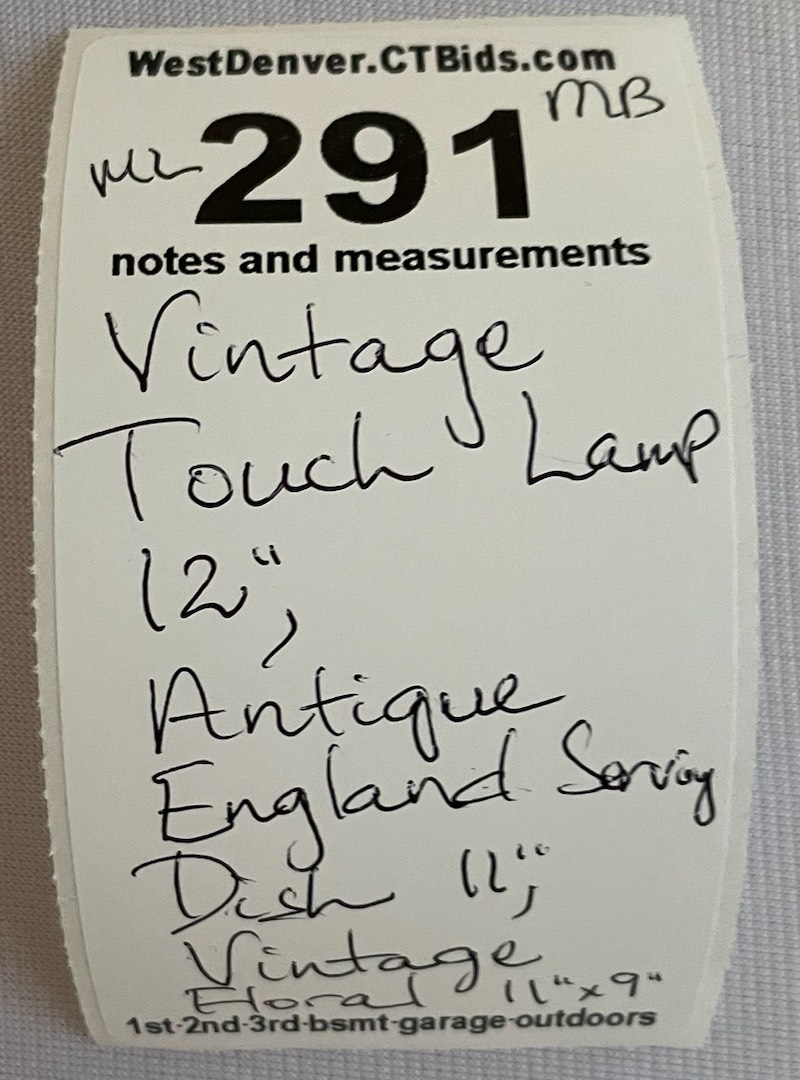 WestDenver.CTBids.com
MB
ML 291
notes and measurements
Vintage
Touch Lamp
12",
Antique
England Serving
Dish 11";
Vintage
Floral 11"x9"
1st-2nd-3rd-bsmt-garage-outdoors